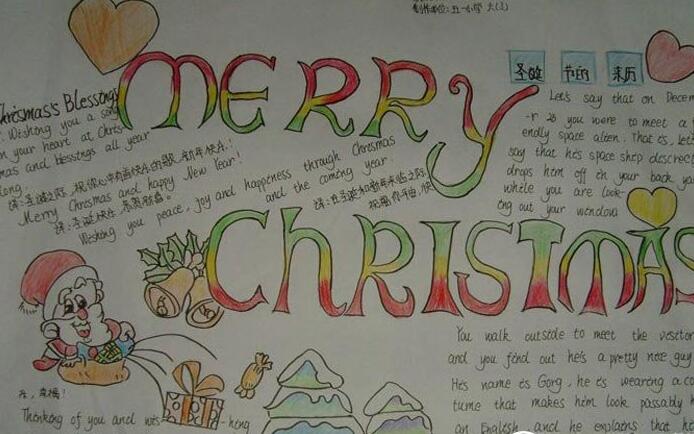 制作单位:五一小学 六(2)
MERRY
CHRISTMAS
Chrismas's Blessings
: Wishing you a song
in your heart at Chris-
mas and blesstngs all year
long.
译:圣诞之际,祝你心中有首快乐的歌,新年快乐!
Merry Chrismas and happy New Year!
译:圣诞快乐,恭贺新禧。
Wishing you peace, joy and happiness through Chrismas
and the coming year.
译:在圣诞和新年来临之际,
祝福你平安,快
圣诞 节的 来历
Let's say that on Decem
-r 25 you were to meet a f
endly space alien. That is, let's
say that his space ship discree
drops him off in your back ya
while you are look-
ing out your window.
You walk outside to meet the visitor
and you find out he's a pretty nice guy
His name is Gorg, he is wearing a co
tume that makes him look passably h
an English and he explains that he
幸福!
Thinking of you and wis-hing